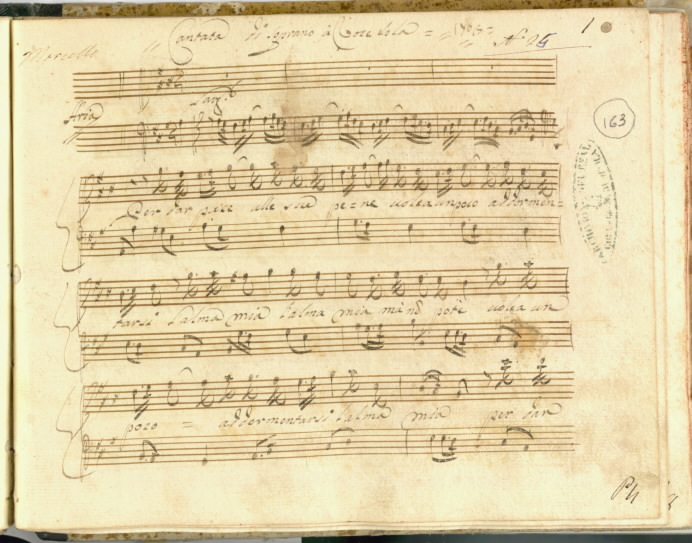 1
Marcello
Cantata di Soprano à Voce Sola =
Larg.
Aria
163
Per dar pace alle sue pe=ne volea un poco addormen=
tarsi l'alma mia l'alma mia mà nò potè volea un
poco = addormentarsi l'alma mia per dar